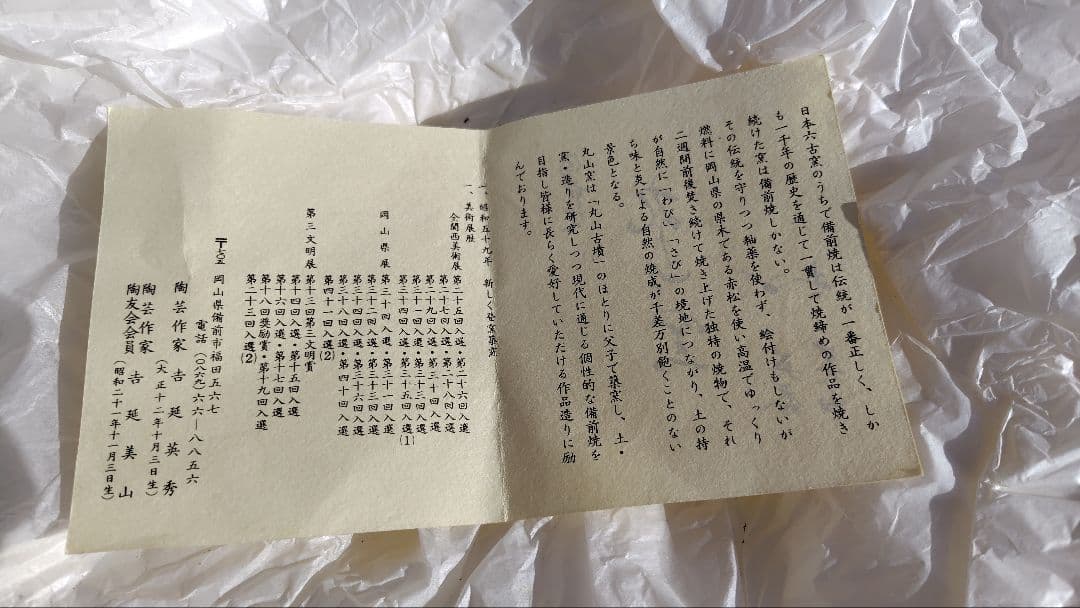 日本六古窯のうちで備前焼は伝統が一番正しく、しか
も一千年の歴史を通じて一貫して焼締めの作品を焼き
続けた窯は備前焼しかない。
その伝統を守りつつ釉薬を使わず、絵付けもしないが
燃料に岡山県の県木である赤松を使い高温でゆっくり
二週間前後焚き続けて焼き上げた独特の焼物で、それ
が自然に「わび」、「さび」の境地につながり、土の持
ち味と炎による自然の焼成が千差万別飽くことのない
景色となる。
丸山窯は「丸山古墳」のほとりに父子で築窯し、土・
窯・造りを研究しつつ現代に通じる個性的な備前焼を
目指し皆様に長らく愛好していただける作品造りに励
んでおります。
一、昭和五十九年 新しく登窯築窯
一、美術展歴
全関西美術展 第二十五回入選・第二十六回入選
第二十七回入選・第二十八回入選
第二十九回入選・第三十回入選
第三十一回入選・第三十三回入選
第三十四回入選・第三十五回入選(1)
岡山県展 第三十回入選・第三十一回入選
第三十二回入選・第三十三回入選
第三十四回入選・第三十六回入選
第三十八回入選・第四十回入選
第四十一回入選(2)
第三文明展 第十三回第三文明賞
第十四回入選・第十五回入選
第十六回入選・第十七回入選
第十八回奨励賞・第十九回入選
第二十三回入選(2)
〒705 岡山県備前市福田五六七
電話(〇八六九)六六―八八五六
陶芸作家 吉延英秀
(大正十二年十月三日生)
陶芸作家 吉延美山
陶友会会員
(昭和二十一年十一月三日生)